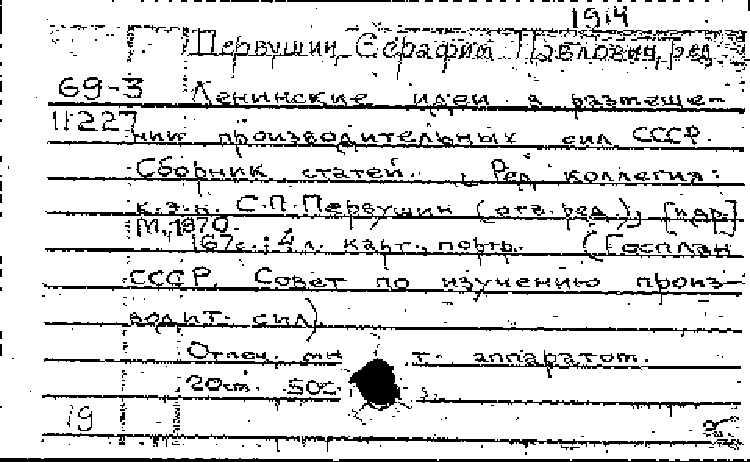 1914
Первушин, Серафим Павлович, ред.
69-3 Ленинские идеи в размеще-
11227 нии производительных сил СССР.
Сборник статей. Ред. коллегия:
к.э.н. С.П. Первушин (отв. ред.), [и др.]
М., 1970.
167с.; 4 л. карт., портр. (Госплан
СССР. Совет по изучению произ-
водит. сил)
Отпеч. мн т. аппаратом.
20см. 500
19